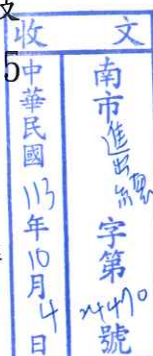 文
收文
5
南市進出字第24470號
中華民國113年10月4日